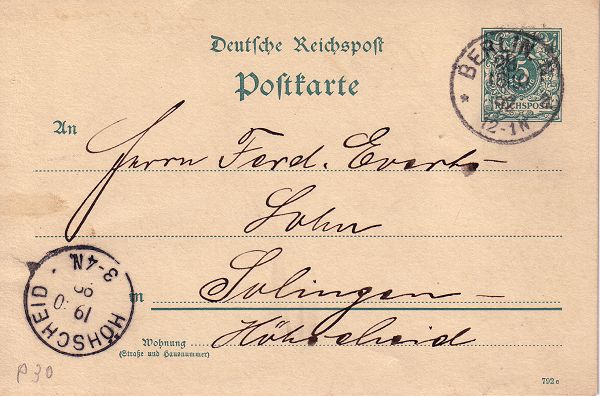 Deutsche Reichspost
Postkarte
BERLIN
5
REICHSPOST
12-1N
An
Herrn Ferd. Everts
Sohn
in Solingen-
Höhscheid
Wohnung
(Straße und Hausnummer)
HÖHSCHEID
3-4N.
19
P30
792 c